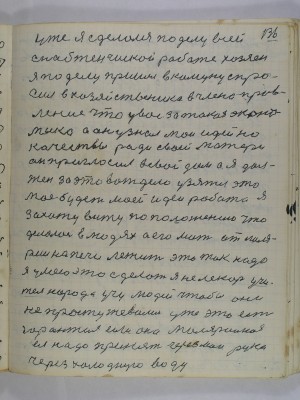 136
уже я сделался по делу всей
снабженческой работе хозяен
я по делу пришел в комуну спро-
сил в хозяйственика в члено прав-
ление что у вас за такая эконо-
мика а он узнал мои идейно
качествы ради своей матери
он пригласил в свой дом а я дол-
жен за это вот дело узяти это
мое будет моей идеи работа я
захочу бить по положению что
делалос в людях а его мать от маля-
рии на печи лежить это так надо
я умею это сделат я не лекар учи-
тел народа учу людей чтобы они
не простуживалис уже это ест
гарантия если она малярийная
ей надо принят через мои руки
через холодную воду